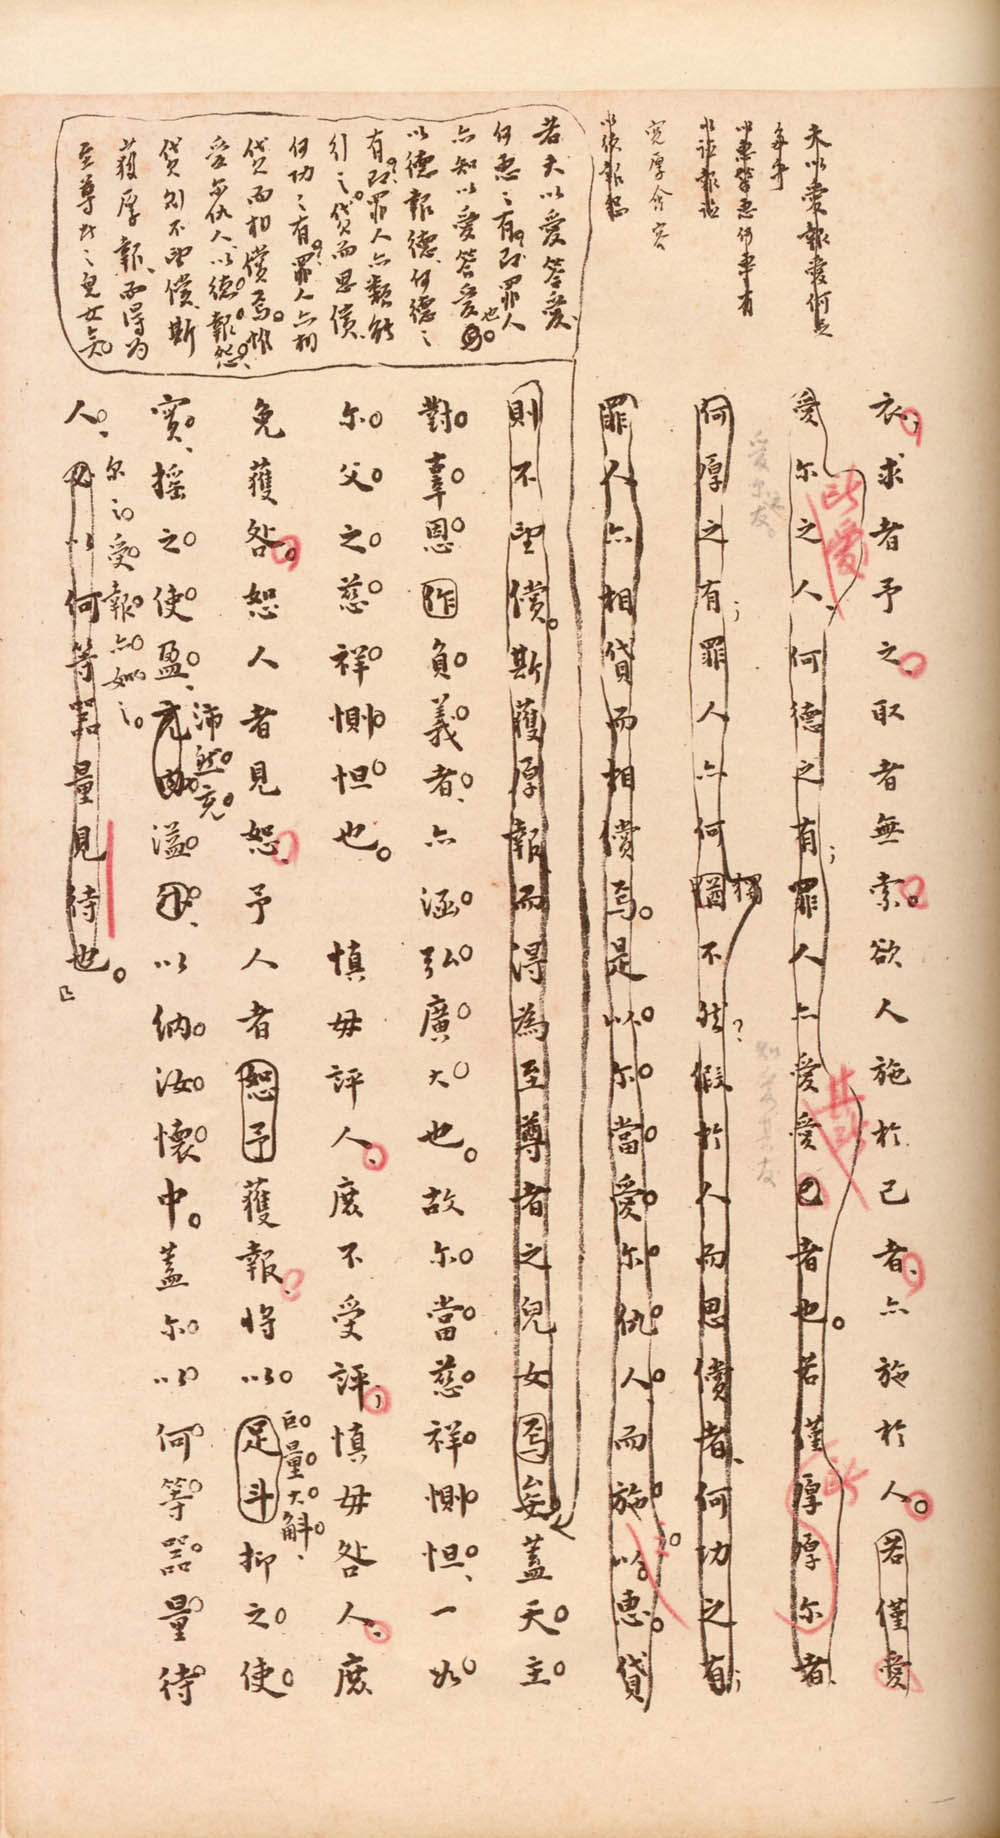 夫以愛報愛何足
為乎
以惠答惠何事有
以謚報謚
寬厚含容
以德報怨
若夫以愛答愛、
何惠之有？即罪人
亦知以愛答愛也。
以德報德、何德之
有？即罪人亦類能
行之。貸而思償、
何功之有？罪人亦相
貸而相償焉。惟
愛爾仇人、以德報怨、
貸則不望償、斯
獲厚報、而得為
至尊者之兒女矣。
衣；求者予之、取者無索。欲人施於己者、亦施於人。若僅愛
愛爾之人、何德之有；罪人亦愛愛己者也。若僅厚厚爾者、
何厚之有；罪人亦何獨不然？假於人而思償者、何功之有；
罪人亦相貸而相償焉。是以爾當愛爾仇人、而施以惠。貸
則不望償。斯獲厚報、而得為至尊者之兒女焉矣。蓋天主
對辜恩作負義者、亦涵弘廣大也。故爾當慈祥惻怛、一如
爾父之慈祥惻怛也。 慎毋評人、庶不受評；慎毋咎人、庶
免獲咎。恕人者見恕、予人者恕予獲報、將以足斗抑之使
巨量大斛、
實、搖之使盈、充溢、以納汝懷中。蓋爾以何等器量待
沛然充
人、必以何等器量見待也。
爾之受報亦如之。
此愛
其所